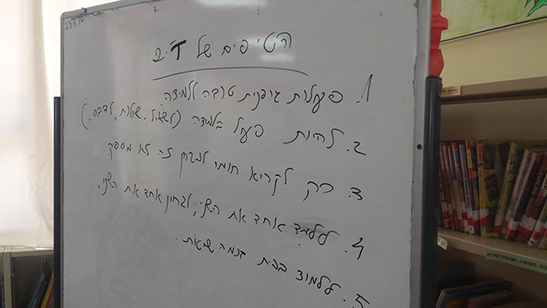 הטיפים של ד'-2
1. פעילות גופנית טובה ללמידה.
2. להיות פעיל בלמידה (לשאול שאלות, לדבר..)
3. רק לקרוא חומר למבחן זה לא מספיק
4. ללמד אחד את השני, לבחון אחד את השני.
5. ללמוד בבית ברמה